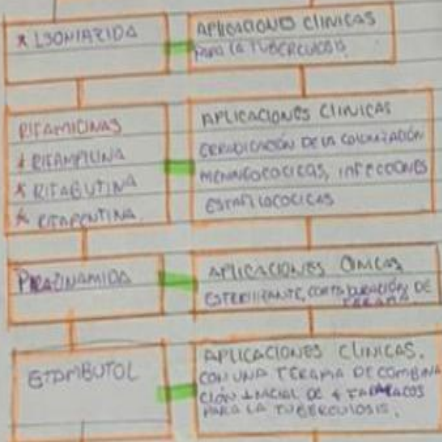 * ISONIAZIDA
APLICACIONES CLINICAS
PARA LA TUBERCULOSIS
RIFAMICINAS
* RIFAMPICINA
* RIFABUTINA
* RIFAPENTINA.
APLICACIONES CLINICAS
ERRADICACIÓN DE LA COLONIZACIÓN
MENINGOCOCICAS, INFECCIONES
ESTAFILOCOCICAS
PIRAZINAMIDA
APLICACIONES CLINICAS
ESTERILIZANTE, CORTA DURACIÓN DE
TERAPIA
ETAMBUTOL
APLICACIONES CLINICAS.
CON UNA TERAPIA DE COMBINA
CIÓN INICIAL DE 4 FARMACOS
PARA LA TUBERCULOSIS.